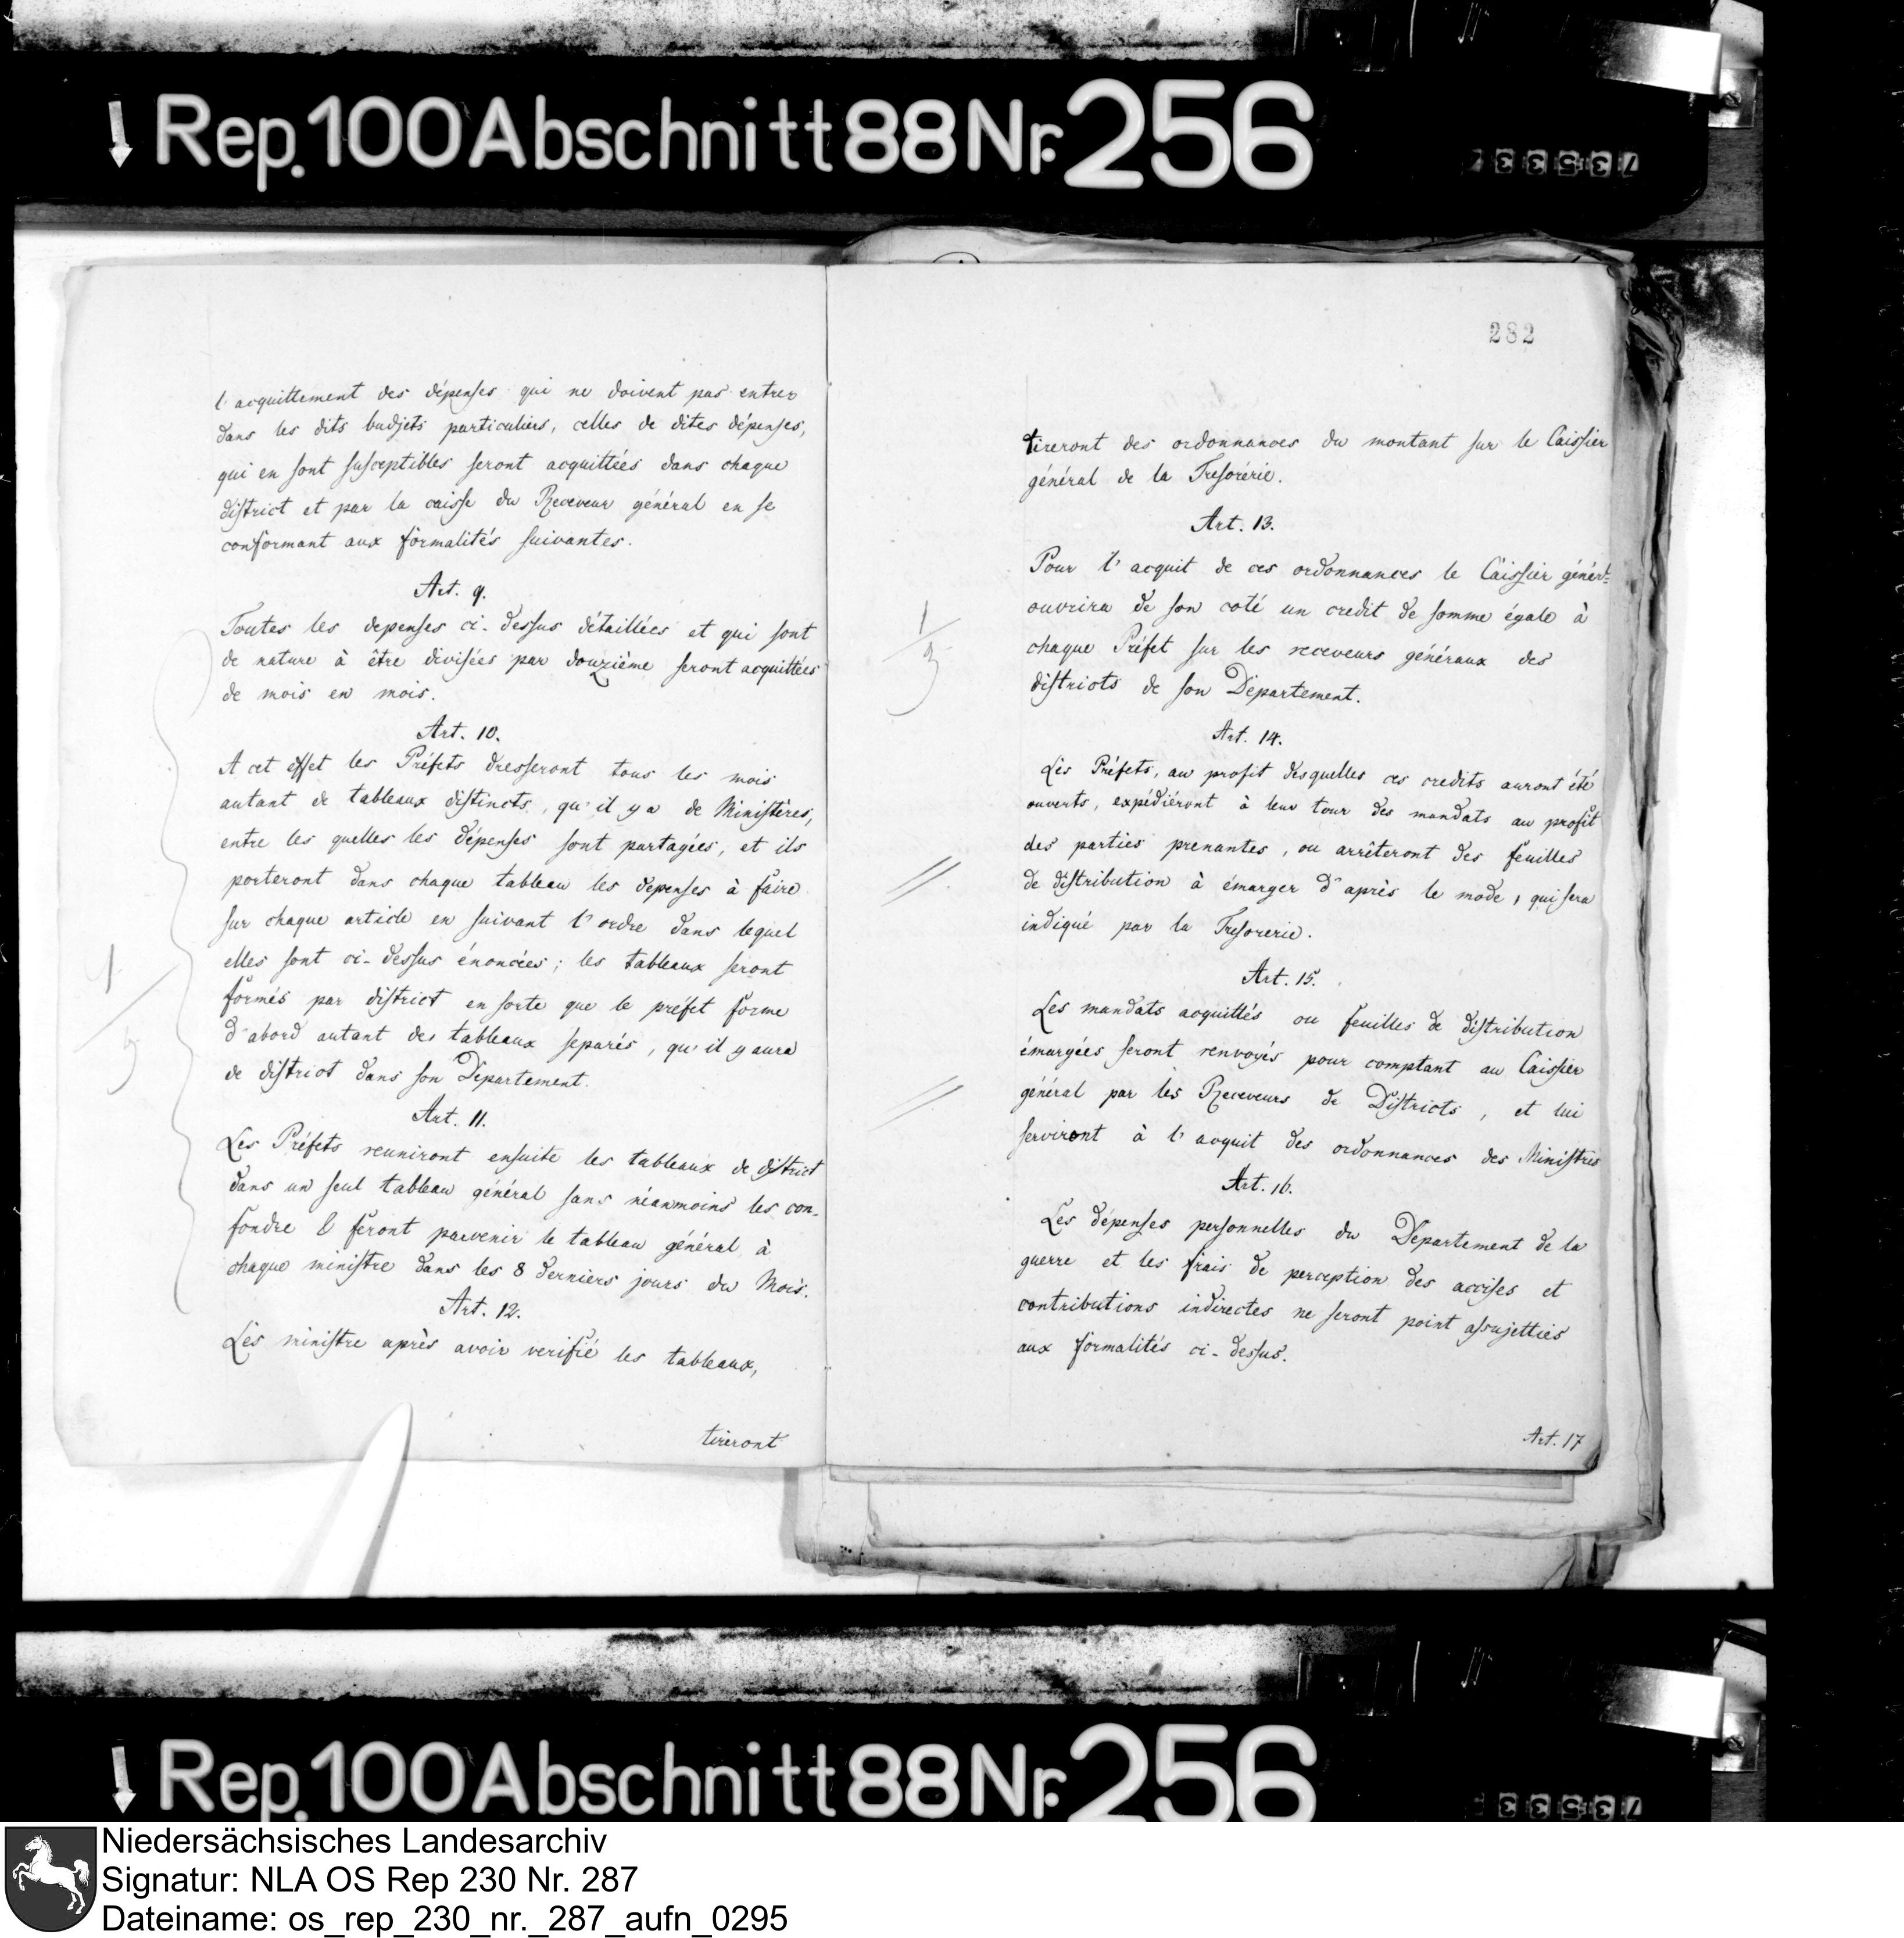 Rep. 100 Abschnitt 88 Nr. 256
l'acquittement des dépenses qui ne doivent pas entrer
dans les dits budjets particuliers, celles de dites dépenses,
qui en sont susceptibles seront acquittées dans chaque
district et par la caisse du Receveur général en se
conformant aux formalités suivantes.
Art. 9.
Toutes les depenses ci-dessus détaillées et qui sont
de nature à être divisées par douzième seront acquittées
de mois en mois.
Art. 10.
A cet effet les Préfets dresseront tous les mois
autant de tableaux distincts, qu'il y a de Ministères,
entre les quelles les dépenses sont partagées, et ils
porteront dans chaque tableau les depenses à faire
sur chaque article en suivant l'ordre dans lequel
elles sont ci-dessus énoncées; les tableaux seront
formés par district en sorte que le préfet forme
d'abord autant des tableaux separés, qu'il y aura
de district dans son Département.
Art. 11.
Les Préfets reuniront ensuite les tableaux de district
dans un seul tableau général sans néanmoins les con-
fondre & feront parvenir le tableau général à
chaque ministre dans les 8 derniers jours du Mois.
Art. 12.
Les ministre après avoir verifié les tableaux,
tireront
282
tireront des ordonnances du montant sur le Caissier
général de la Tresorérie.
Art. 13.
Pour l'acquit de ces ordonnances le Caissier général
ouvrira de son coté un credit de somme égale à
chaque Préfet sur les receveurs généraux des
districts de son Département.
Art. 14.
Les Préfets, au profit desquelles ces credits auront été
ouverts, expédiéront à leur tour des mandats au profit
des parties prenantes, ou arrêteront des feuilles
de distribution à émarger d'après le mode, qui sera
indiqué par la Tresorerie.
Art. 15.
Les mandats acquittés ou feuilles de distribution
émargées seront renvoyés pour comptant au Caissier
général par les Receveurs de Districts, et lui
serviront à l'acquit des ordonnances des Ministres
Art. 16.
Les dépenses personnelles du Département de la
guerre et les frais de perception des accises et
contributions indirectes ne seront point assujetties
aux formalités ci-dessus.
Art. 17
Rep. 100 Abschnitt 88 Nr. 256
Niedersächsisches Landesarchiv
Signatur: NLA OS Rep 230 Nr. 287
Dateiname: os_rep_230_nr._287_aufn_0295